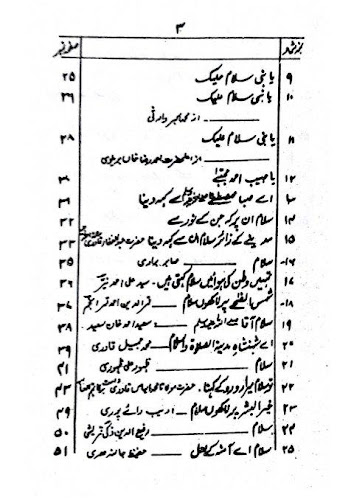 ۳
نمبر شمار صفحہ نمبر
۹ یا نبی سلام علیک ۲۵
۱۰ یا نبی سلام علیک ۲۶
از اکبر وارثی
۱۱ یا نبی سلام علیک ۲۸
از اعلیٰحضرت احمد رضا خاں بریلوی
۱۲ یا حبیب احمد مجتبیٰ
۱۳ اے صبا مصطفےٰ سے کہہ دینا
۱۴ سلام ان پر کہ جن کے نور سے ۳۲
۱۵ مدینے کے زائر سلام ان سے کہہ دینا حضرت قادری ۳۳
۱۶ سلام صابر بہاری ۳۵
۱۷ تمہیں وطن کی ہوائیں سلام کہتی ہیں۔ سید علی احمد ۳۶
۱۸ شمس الضحیٰ پر لاکھوں سلام قمر الدین احمد قمر انجم ۳۷
۱۹ سلام آقا سعید احمد خان سعید ۳۸
۲۰ اے شہنشاہِ مدینہ الصلوٰۃ والسلام محمد جمیل قادری ۳۹
۲۱ سلام ظہور علی ظہوری ۴۱
۲۲ تو سلام میرا رو رو کے کہنا۔ حضرت مولانا محمد الیاس قادری ۴۳
۲۳ خیر البشر پر لاکھوں سلام ادیب رائے پوری ۴۹
۲۴ سلام رفیع الدین ذکی قریشی ۵۰
۲۵ سلام اے آمنہ کے لعل حفیظ جالندھری ۵۱